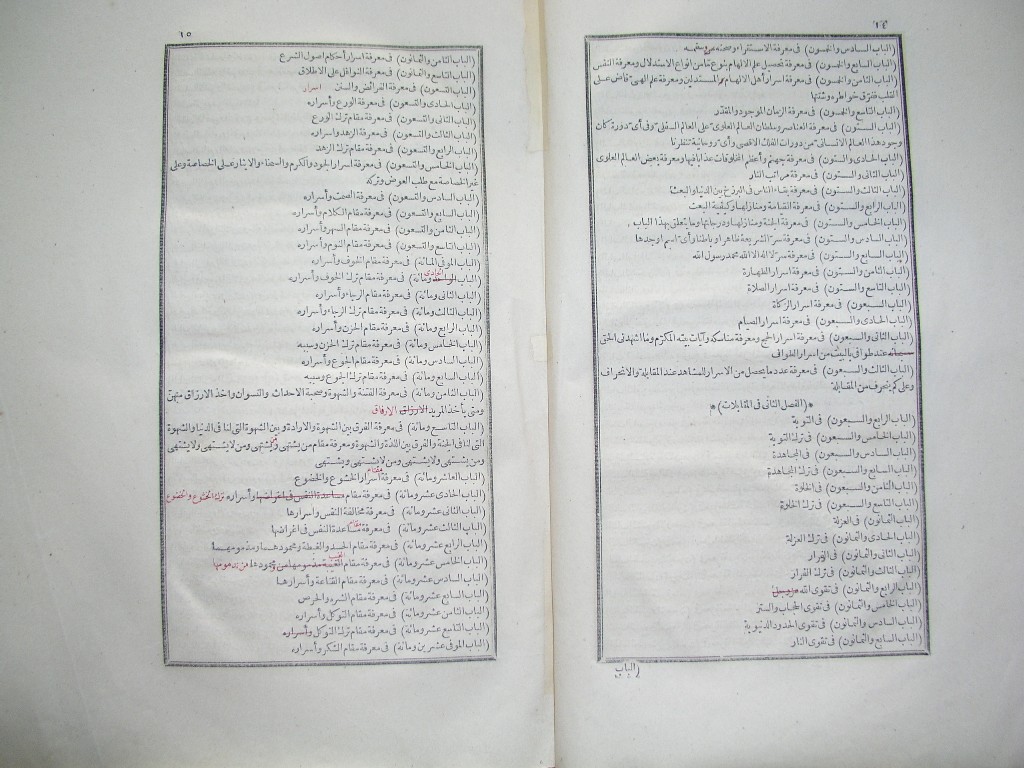 ١٤
(الباب السادس والخمسون) فى معرفة الاستقراء وصحته من سقمه
(الباب السابع والخمسون) فى معرفة تحصيل علم الالهام بنوع تما من انواع الاستدلال ومعرفة النفس
(الباب الثامن والخمسون) فى معرفة اسرار أهل الالهام المستدلين ومعرفة علم الهى قاض على
القلب ففرق خواطره وشتتها
(الباب التاسع والخمسون) فى معرفة الزمان الموجود والمقدر
(الباب الستون) فى معرفة العناصر وسلطان العالم العلوى على العالم السفلى وفى أى دورة كان
وجود هذا العالم الانسانى من دورات الفلك الاقصى وأى روحانية تنظرنا
(الباب الحادى والستون) فى معرفة جهنم وأعظم المخلوقات عذابا فيها ومعرفة بعض العالم العلوى
(الباب الثانى والستون) فى معرفة مراتب النار
(الباب الثالث والستون) فى معرفة بقاء الناس فى البرزخ بين الدنيا والبعث
(الباب الرابع والستون) فى معرفة القيامة ومنازلها وكيفية البعث
(الباب الخامس والستون) فى معرفة الجنة ومنازلها ودرجاتها وما يتعلق بهذا الباب
(الباب السادس والستون) فى معرفة سر الشريعة ظاهرا وباطنا وأى اسم اوجدها
(الباب السابع والستون) فى معرفة سر لا اله الا الله محمد رسول الله
(الباب الثامن والستون) فى معرفة اسرار الطهارة
(الباب التاسع والستون) فى معرفة اسرار الصلاة
(الباب السبعون) فى معرفة اسرار الزكاة
(الباب الحادى والسبعون) فى معرفة اسرار الصيام
(الباب الثانى والسبعون) فى معرفة اسرار الحج ومعرفة مناسكه وآيات بيته المكرّم وما اشهدنى الحق
سبحانه عند طوافى بالبيت من اسرار الطواف
(الباب الثالث والسبعون) فى معرفة عدد ما يحصل من الاسرار للمشاهد عند المقابلة والانحراف
وعلى كم ينحرف من المقابلة
*(الفصل الثانى فى المقابلات)*
(الباب الرابع والسبعون) فى التوبة
(الباب الخامس والسبعون) فى ترك التوبة
(الباب السادس والسبعون) فى المجاهدة
(الباب السابع والسبعون) فى ترك المجاهدة
(الباب الثامن والسبعون) فى الخلوة
(الباب التاسع والسبعون) فى ترك الخلوة
(الباب الثمانون) فى العزلة
(الباب الحادى والثمانون) فى ترك العزلة
(الباب الثانى والثمانون) فى الفرار
(الباب الثالث والثمانون) فى ترك الفرار
(الباب الرابع والثمانون) فى تقوى الله
(الباب الخامس والثمانون) فى تقوى الحجاب والستر
(الباب السادس والثمانون) فى تقوى الحدود الدنيوية
(الباب السابع والثمانون) فى تقوى النار
(الباب
١٥
(الباب الثامن والثمانون) فى معرفة اسرار أحكام اصول الشرع
(الباب التاسع والثمانون) فى معرفة النوافل على الاطلاق
(الباب التسعون) فى معرفة الفرائض والسنن اسرار
(الباب الحادى والتسعون) فى معرفة الورع وأسراره
(الباب الثانى والتسعون) فى معرفة مقام ترك الورع
(الباب الثالث والتسعون) فى معرفة الزهد واسراره
(الباب الرابع والتسعون) فى معرفة مقام ترك الزهد
(الباب الخامس والتسعون) فى معرفة اسرار الجود والكرم والسخاء والايثار على الخصاصة وعلى
غير الخصاصة مع طلب العوض وتركه
(الباب السادس والتسعون) فى معرفة الصمت وأسراره
(الباب السابع والتسعون) فى معرفة مقام الكلام وأسراره
(الباب الثامن والتسعون) فى معرفة مقام السهر وأسراره
(الباب التاسع والتسعون) فى معرفة مقام النوم وأسراره
(الباب الموفى المائة) فى معرفة مقام الخوف وأسراره
(الباب الحادى ومائة) فى معرفة مقام ترك الخوف وأسراره
(الباب الثانى ومائة) فى معرفة مقام الرجاء وأسراره
(الباب الثالث ومائة) فى معرفة مقام ترك الرجاء وأسراره
(الباب الرابع ومائة) فى معرفة مقام الحزن وأسراره
(الباب الخامس ومائة) فى معرفة مقام ترك الحزن وسببه
(الباب السادس ومائة) فى معرفة مقام الجوع وأسراره
(الباب السابع ومائة) فى معرفة مقام ترك الجوع وسببه
(الباب الثامن ومائة) فى معرفة الفتنة والشهوة وصحبة الاحداث والنسوان واخذ الارزاق منهنّ
ومتى يأخذ المريد الارزاق الارفاق
(الباب التاسع ومائة) فى معرفة الفرق بين الشهوة والارادة وبين الشهوة التى لنا فى الدنيا والشهوة
التى لنا فى الجنة والفرق بين اللذة والشهوة ومعرفة مقام من يشتهى ويشتهى ومن لا يشتهى ولا يشتهى
ومن يشتهى ولا يشتهى ومن لا يشتهى ويشتهى
(الباب العاشر ومائة) فى معرفة مقام أسرار الخشوع والخضوع
(الباب الحادى عشر ومائة) فى معرفة مقام مساعدة النفس فى اغراضها وأسراره ترك الخشوع والخضوع
(الباب الثانى عشر ومائة) فى معرفة مخالفة النفس وأسرارها
(الباب الثالث عشر ومائة) فى معرفة مقام مساعدة النفس فى اغراضها
(الباب الرابع عشر ومائة) فى معرفة مقام الحسد والغبطة ومحمودهما ومذمومهما
(الباب الخامس عشر ومائة) فى معرفة مقام الغيبة مذمومها من محمودها من مذمومها
(الباب السادس عشر ومائة) فى معرفة مقام القناعة وأسرارها
(الباب السابع عشر ومائة) فى معرفة مقام الشره والحرص
(الباب الثامن عشر ومائة) فى معرفة مقام التوكل وأسراره
(الباب التاسع عشر ومائة) فى معرفة مقام ترك التوكل وأسراره
(الباب الموفى عشرين ومائة) فى معرفة مقام الشكر وأسراره